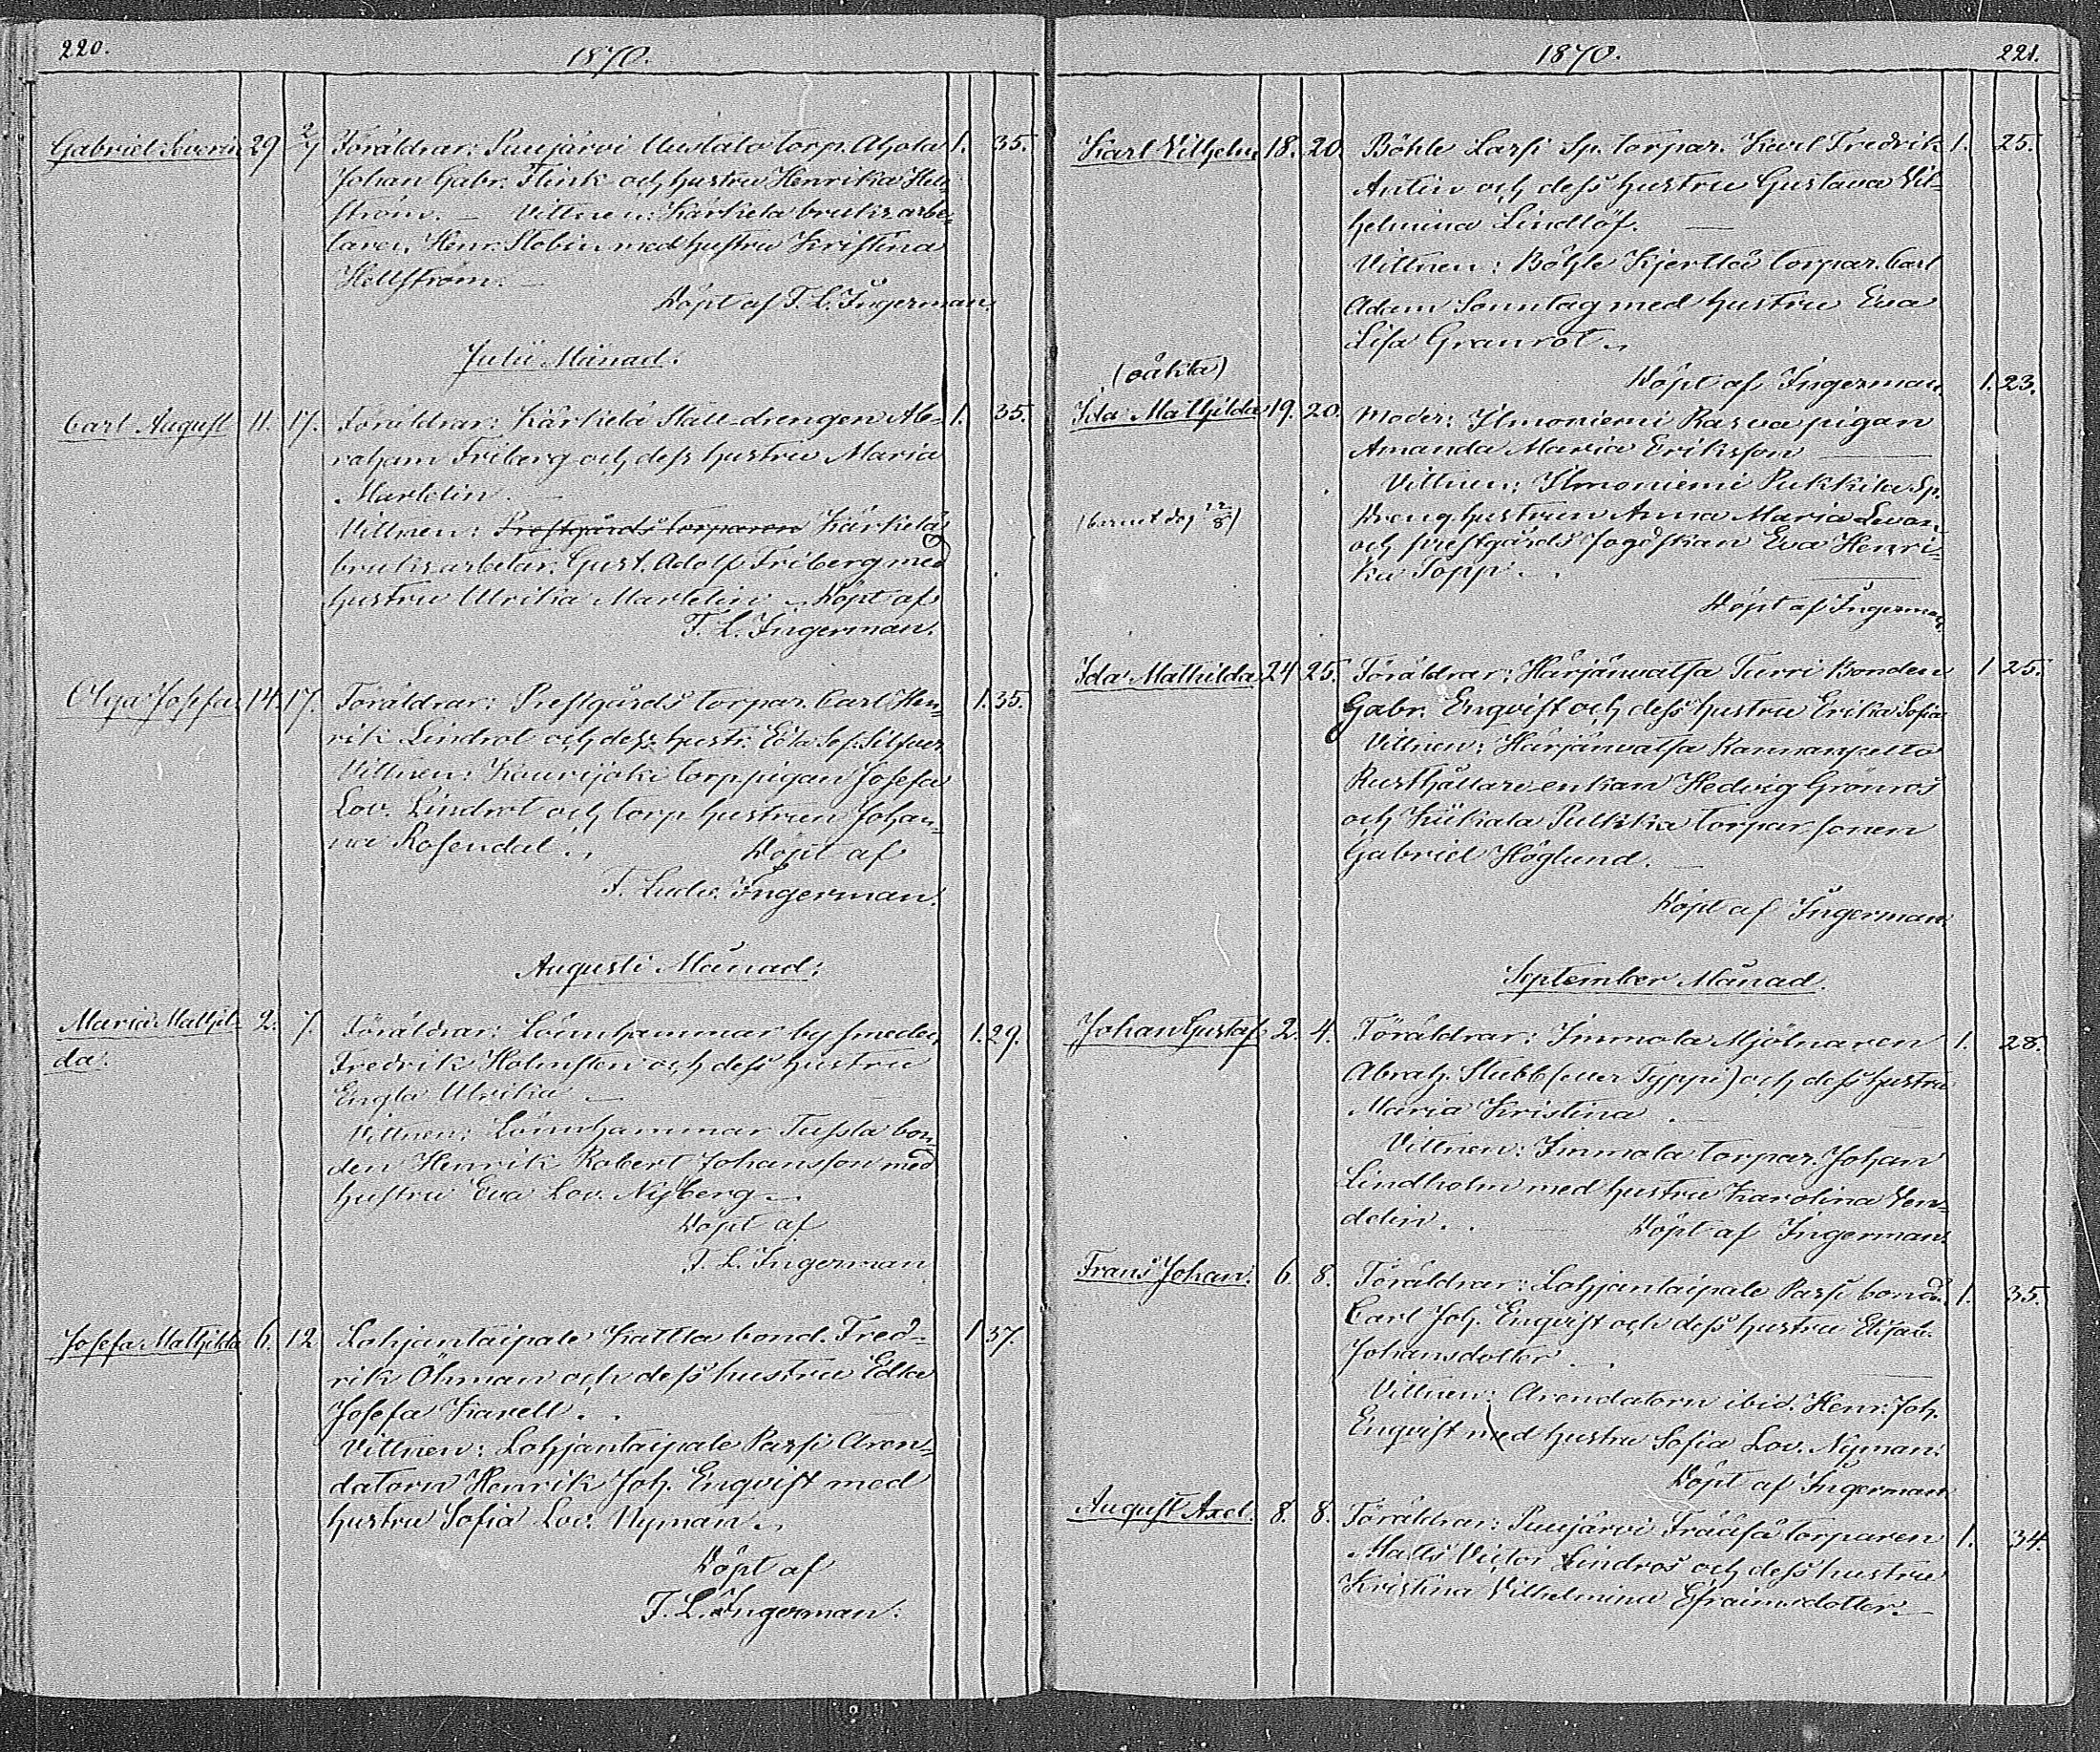 220.
1870.
Gabriel Severin 29 2/7 Föräldrar: Puujärvi Uustalo torp. Ahola 1. 35.
Johan Gabr. Flink och hustru Henrika Hell-
ström. – Vittnen: Kärkelä bruks arbe-
taren Henr. Stobin med hustru Kristina
Hellström. –
Döpt af F. L. Ingerman.
Julii Månad:
Carl August 11. 17. Föräldrar: Kärkelä Stall-drengen Ab- 1. 35.
raham Friberg och dess hustru Maria
Martelin. –
Vittnen: Prestgårds torparen Kärkelä
bruksarbetar. Gust. Adolf Friberg med
hustru Ulrika Martelin. Döpt af
F. L. Ingerman.
Olga Josefa 14. 17. Föräldrar: Prestgårds torpar. Carl Hen- 1. 35.
rik Lindrot och dess hustr. Eda Sef. Silfver
Vittnen: Kourijoki torppigan Josefa
Lov. Lindrot och torp hustrun Johan-
na Rosendal. Döpt af
F. Ludv. Ingerman.
Augusti Månad:
Maria Mathil- 2. 7. Föräldrar: Lönnhammar by smeden 1. 29.
da. Fredrik Holmsten och dess hustru
Engla Ulrika –
Vittnen: Lönnhammar Tussla bon-
den Henrik Robert Johansson med
hustru Eva Lov. Nyberg –
Döpt af
F. L. Ingerman
Josefa Mathilda 6. 12 Lohjantaipale Kattla bond. Fred- 1 37.
rik Öhman och dess hustru Edla
Josefa Karell.
Vittnen: Lohjantaipale Passi Aren-
datorn Henrik Joh. Enqvist med
hustru Sofia Lov. Nyman.
Döpt af
F. L. Ingerman.
1870.
221.
Karl Vilhelm 18. 20. Böhle Lassi Sp. torpar. Karl Fredrik 1. 25.
Antin och dess hustru Gustava Vil-
helmina Lindlöf. –
Vittnen: Böhle Kjertlä torpar. Carl
Adam Sonntag med hustru Eva
Lisa Granrot.
(oäkta) Döpt af Ingerman. 1. 23.
Ida Mathilda 19. 20. Moder: Ilmoniemi Rasva pigan
Amanda Maria Eriksson –
Vittnen: Ilmoniemi Pukkila Sp.
(barnet dog 22/8) Dreng hustrun Anna Maria Levon
och prestgårds fogdskan Eva Henri-
ka Topp. –
Döpt af Ingerman
Ida Mathilda 24 25. Föräldrar: Härjänvatsa Turri Bonden 1 25.
Gabr. Enqvist och dess hustru Erika Sofia
Vittnen: Härjänvatsa Rannanpelto
Rusthållare enkan Hedvig Grönros
och Kükala Pulkka torpar sonen
Gabriel Höglund. –
Döpt af Ingerman.
September Månad.
Johan Gustaf 2. 4. Föräldrar: Immola Mjölnaren 1. 28.
Abrah. Stubb (eller Typpi) och dess hustru
Maria Kristina
Vittnen: Immola torpar. Johan
Lindholm med hustru Karolina Ven-
delin. Döpt af Ingerman.
Frans Johan. 6. 8. Föräldrar: Lohjantaipale Passi bond. 1. 35.
Carl Joh. Enqvist och dess hustru Elisab.
Johansdotter
Vittnen: Arendatorn ibid. Henr. Joh.
Enqvist med hustru Sofia Lov. Nyman.
Döpt af Ingerman
August Axel. 8. 8. Föräldrar: Puujärvi Frääsä torparen 1. 34.
Matts Victor Lindros och dess hustru
Kristina Vilhelmina Efraimsdotter. –